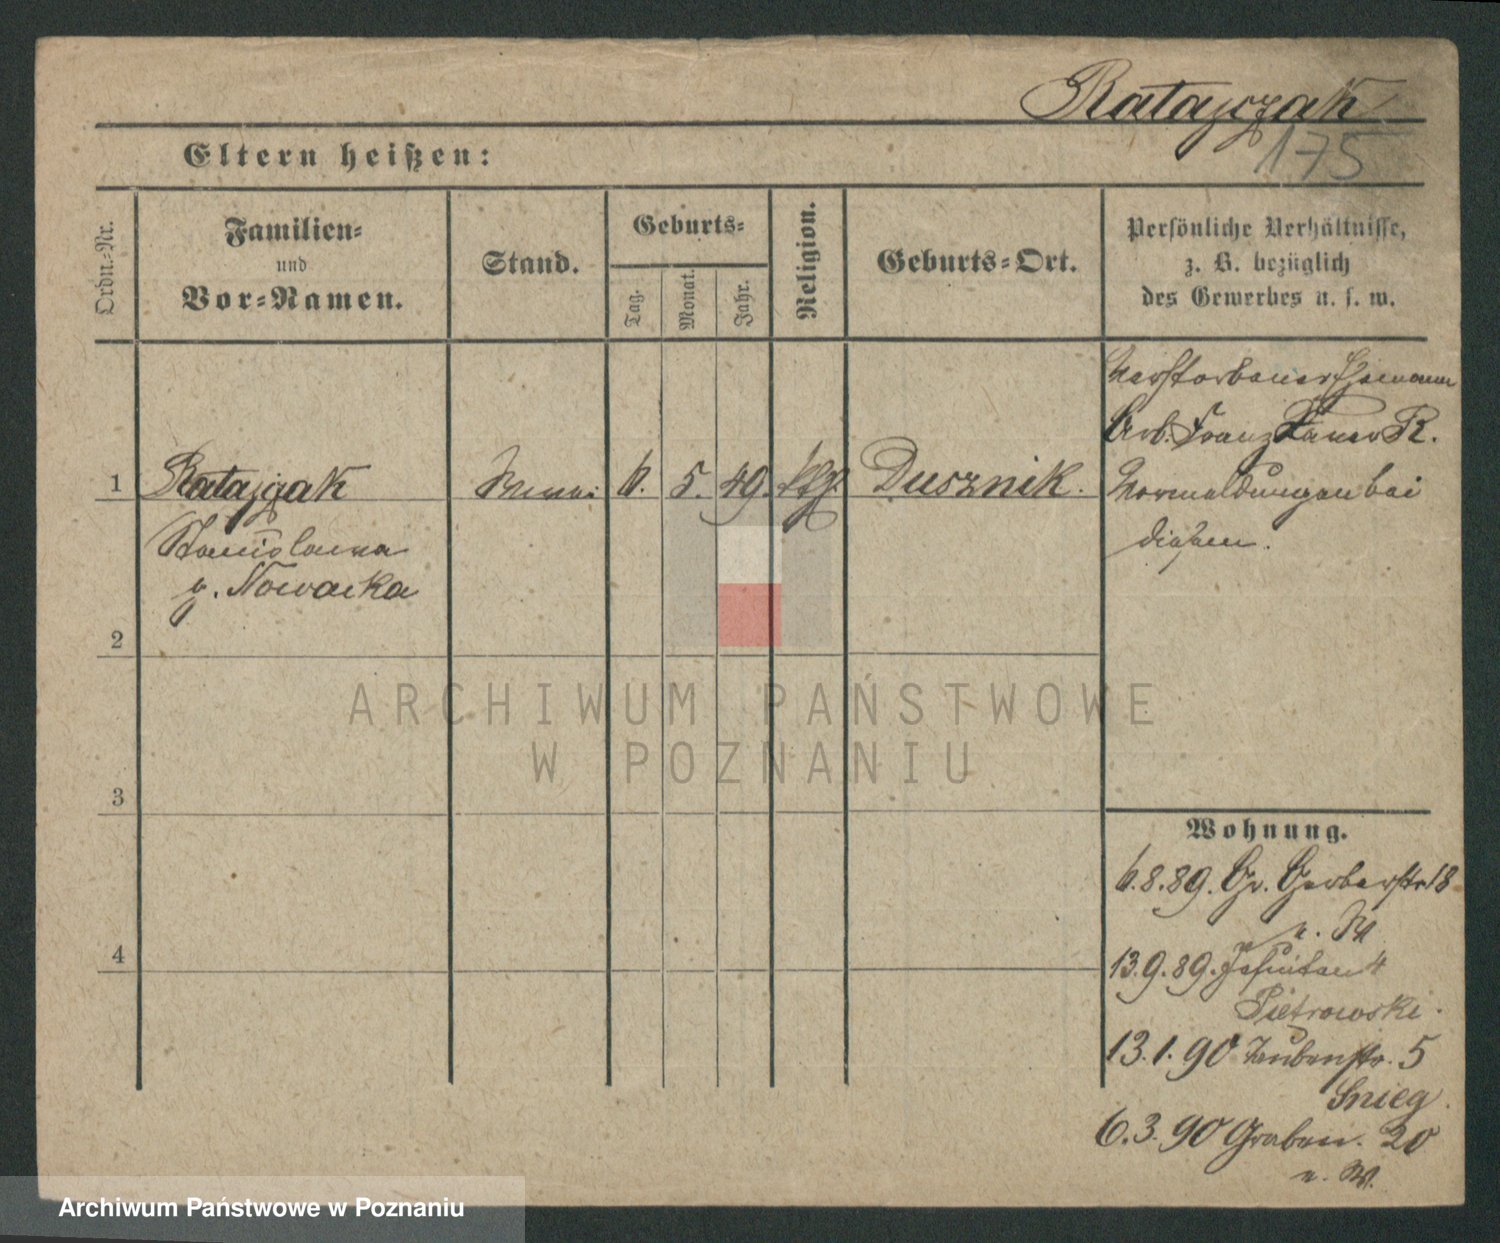 Ratajczak
175
Eltern heißen:
Ordn.-Nr.
Familien-
und
Vor-Namen.
Stand.
Geburts-
Tag.
Monat.
Jahr.
Religion.
Geburts-Ort.
Persönliche Verhältnisse,
z. B. bezüglich
des Gewerbes u. s. w.
Verstorbener Ehemann
Arb. Franz Xaver R.
1 Ratajczak 6. 5. 49. kth. Dusznik.
Vormeldungen bei
diesem.
Stanislawa
g. Nowacka
2
ARCHIWUM PAŃSTWOWE
W POZNANIU
3
Wohnung.
6.8.89. Gr. Gerberstr 18
4
13.9.89. Jesuiten 4
Pietrowski.
13.1.90 Taubenstr. 5
Snieg.
6.3.90 Graben. 20
Archiwum Państwowe w Poznaniu